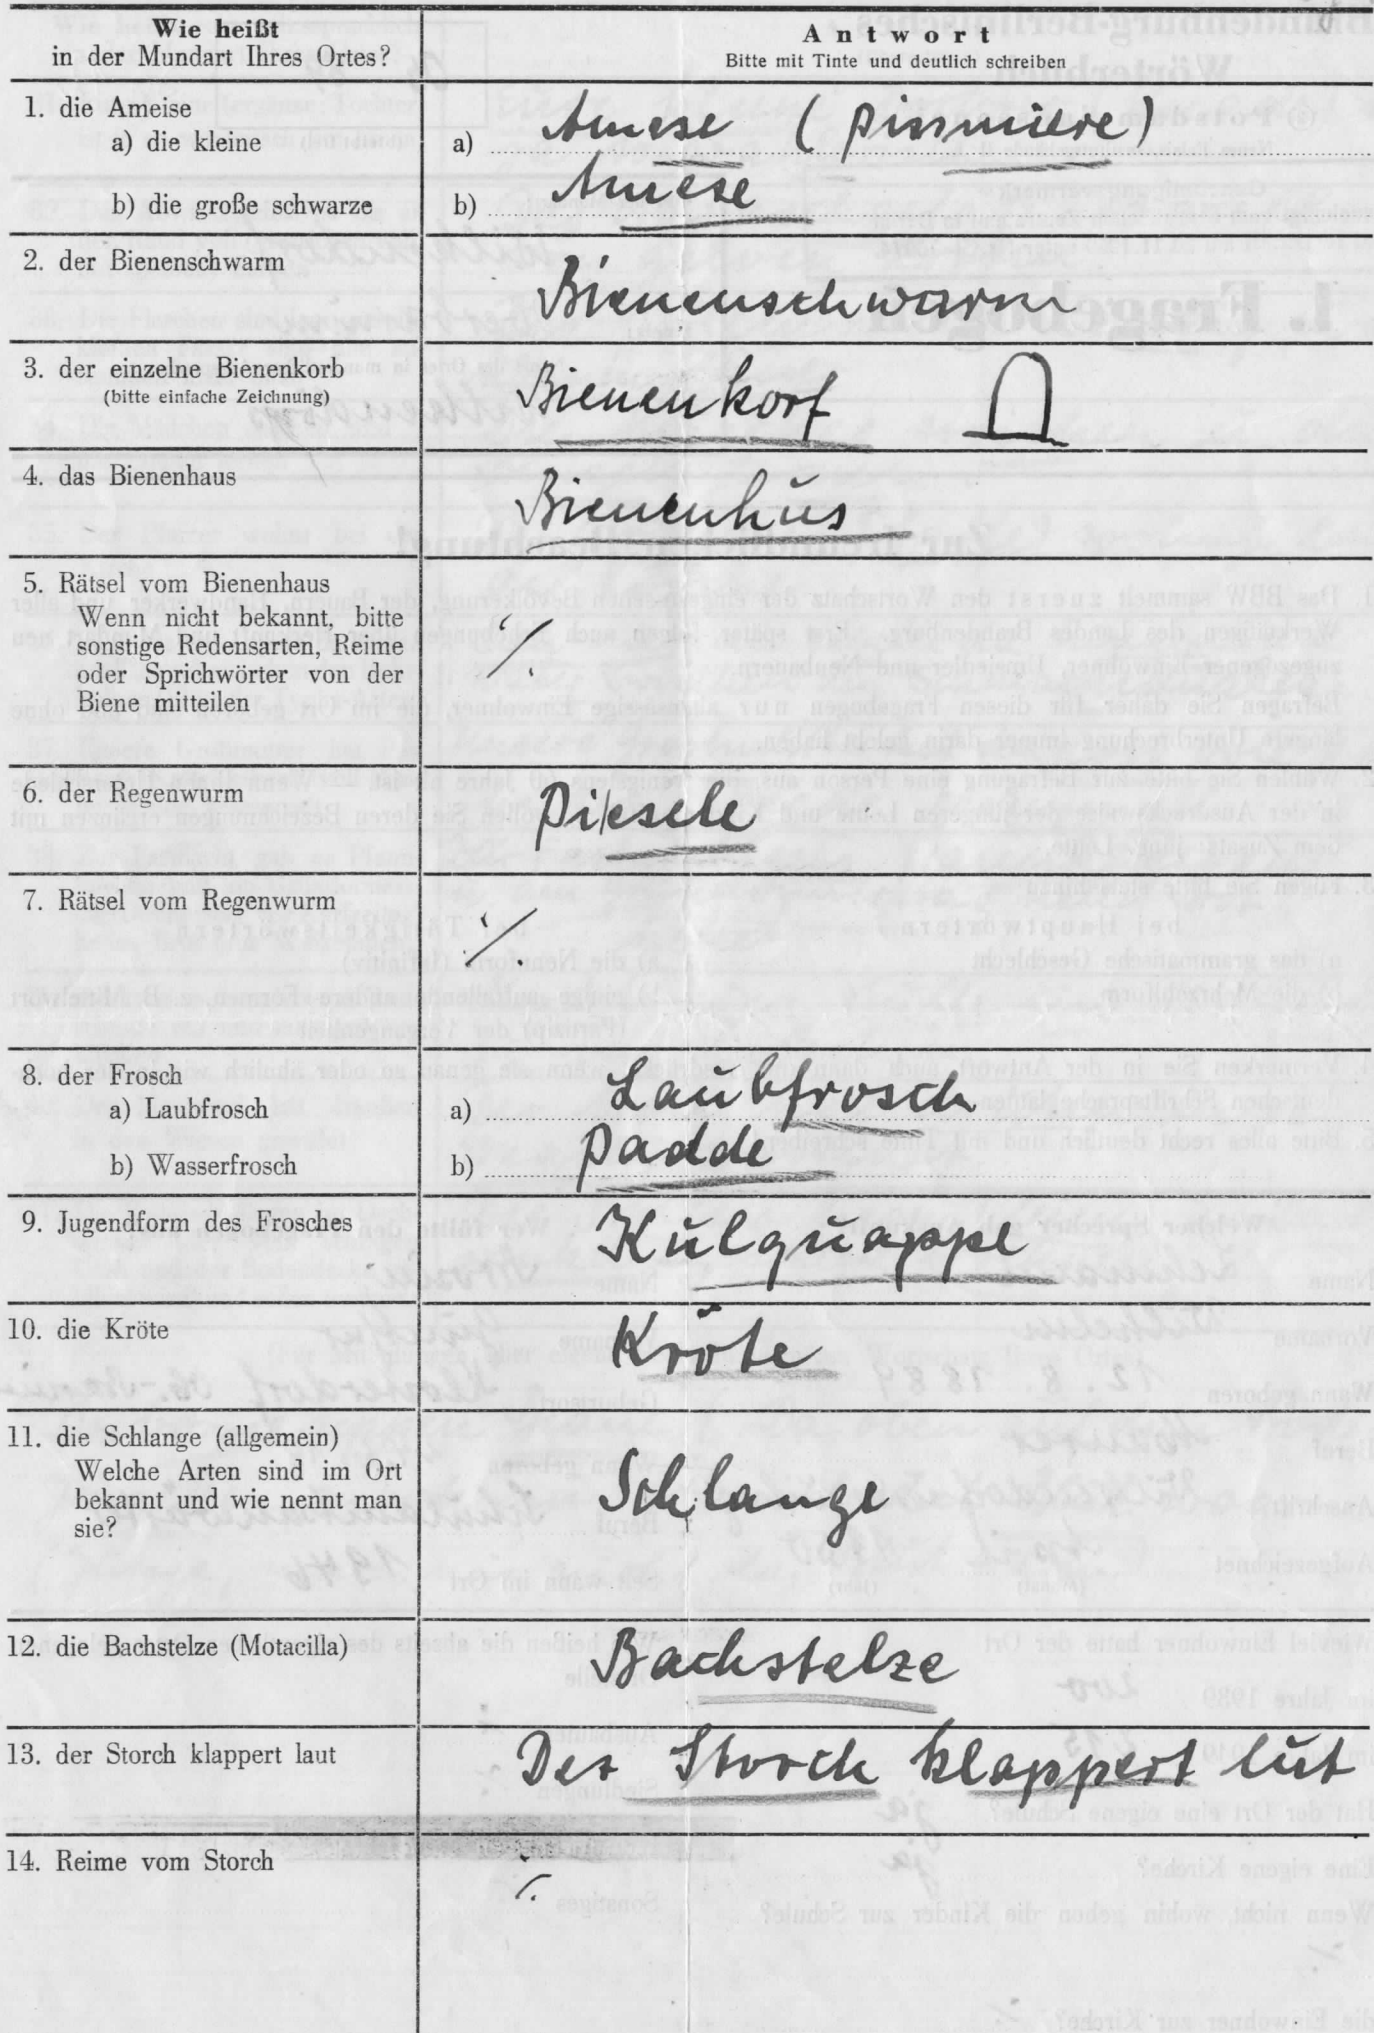 Wie heißt
in der Mundart Ihres Ortes?
Antwort
Bitte mit Tinte und deutlich schreiben
1. die Ameise
a) die kleine
a) Amese (Pissmiere)
b) die große schwarze
b) Amese
2. der Bienenschwarm
Bienenschwarm
3. der einzelne Bienenkorb
(bitte einfache Zeichnung)
Bienenkorf
4. das Bienenhaus
Bienenhus
5. Rätsel vom Bienenhaus
Wenn nicht bekannt, bitte
sonstige Redensarten, Reime
oder Sprichwörter von der
Biene mitteilen
./.
6. der Regenwurm
Pi/esele
7. Rätsel vom Regenwurm
./.
8. der Frosch
a) Laubfrosch
a) Laubfrosch
b) Wasserfrosch
b) Padde
9. Jugendform des Frosches
Kulquappe
10. die Kröte
Kröte
11. die Schlange (allgemein)
Welche Arten sind im Ort
bekannt und wie nennt man
sie?
Schlange
12. die Bachstelze (Motacilla)
Bachstelze
13. der Storch klappert laut
Der Storch klappert lut
14. Reime vom Storch
./.